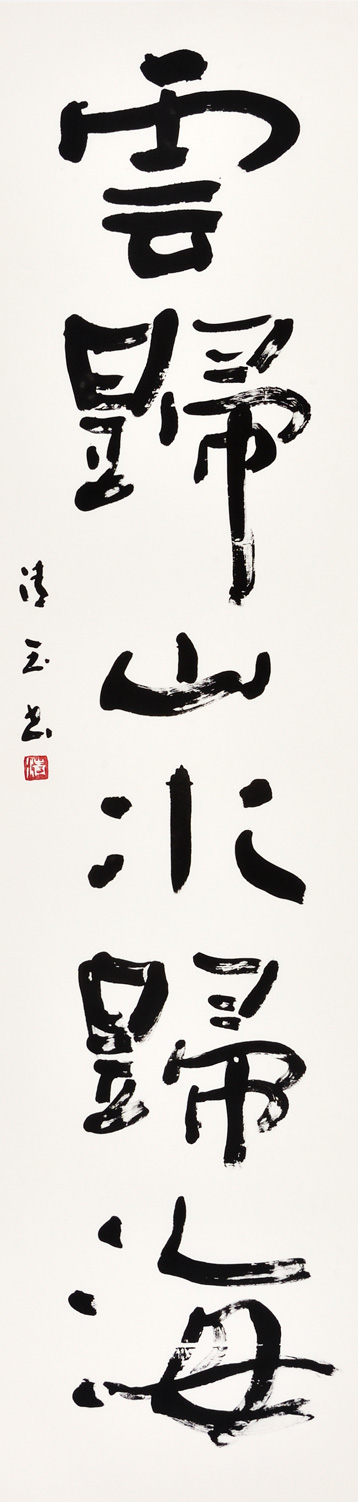 雲歸山水歸海
清玉书